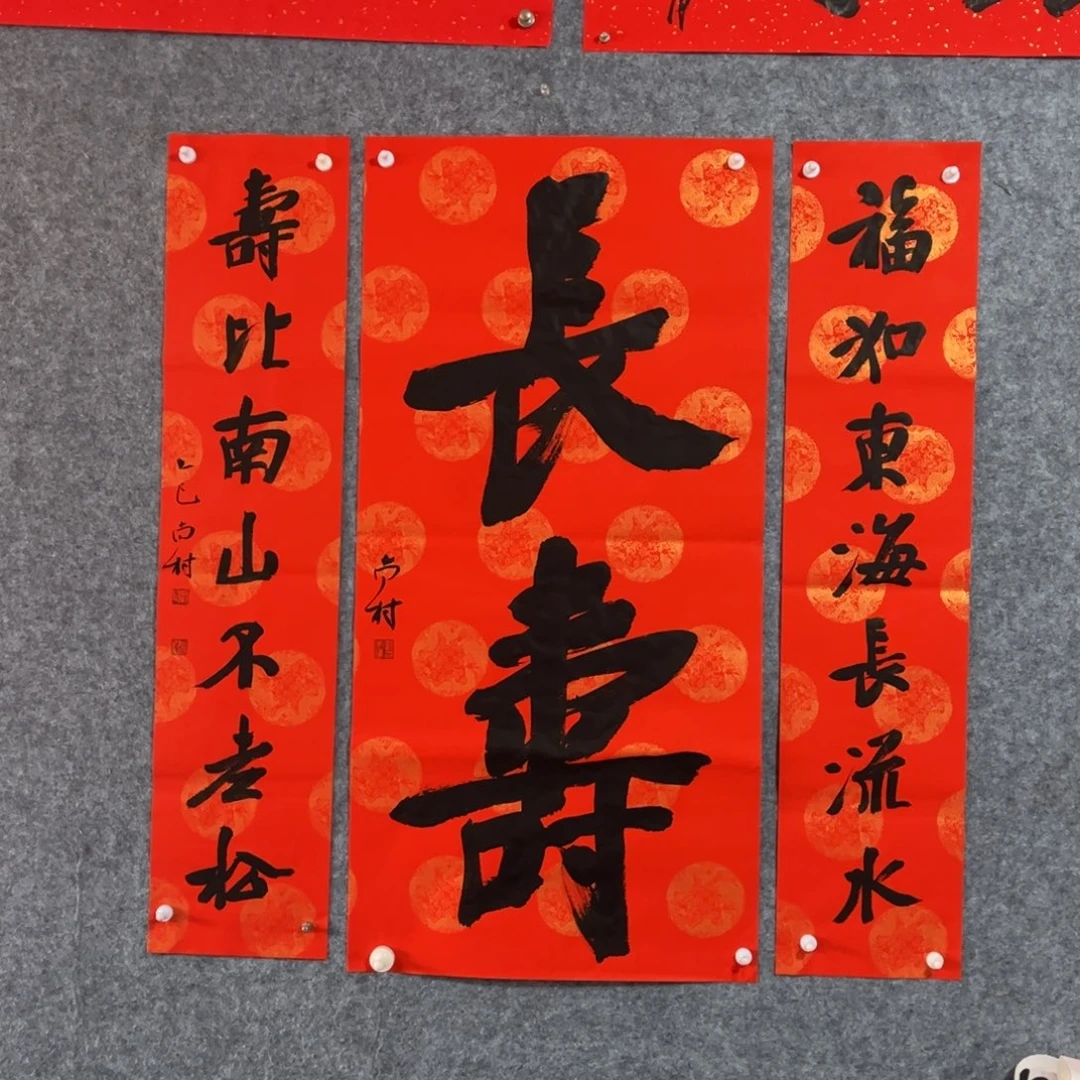 福如東海長流水
長壽
尚村
壽比南山不老松
乙巳尚村